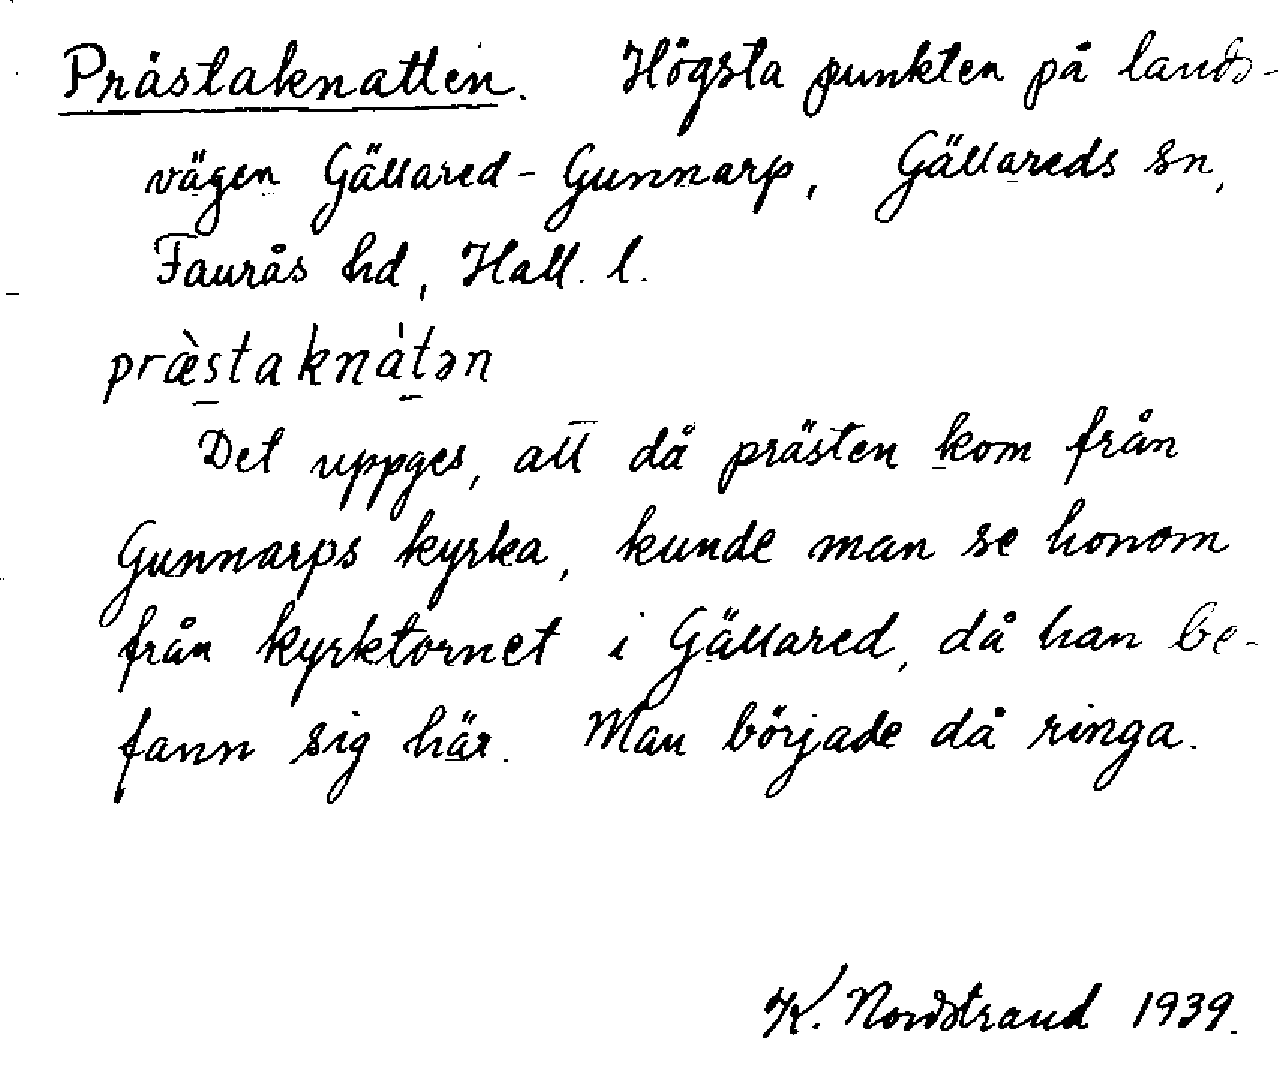 Prästaknatten. Högsta punkten på lands-
vägen Gällared - Gunnarp, Gällareds sn,
Faurås hd, Hall. l.
præ̀staknátən
Det uppges, att då prästen kom från
Gunnarps kyrka, kunde man se honom
från kyrktornet i Gällared, då han be-
fann sig här. Man började då ringa.
K. Nordstrand 1939.